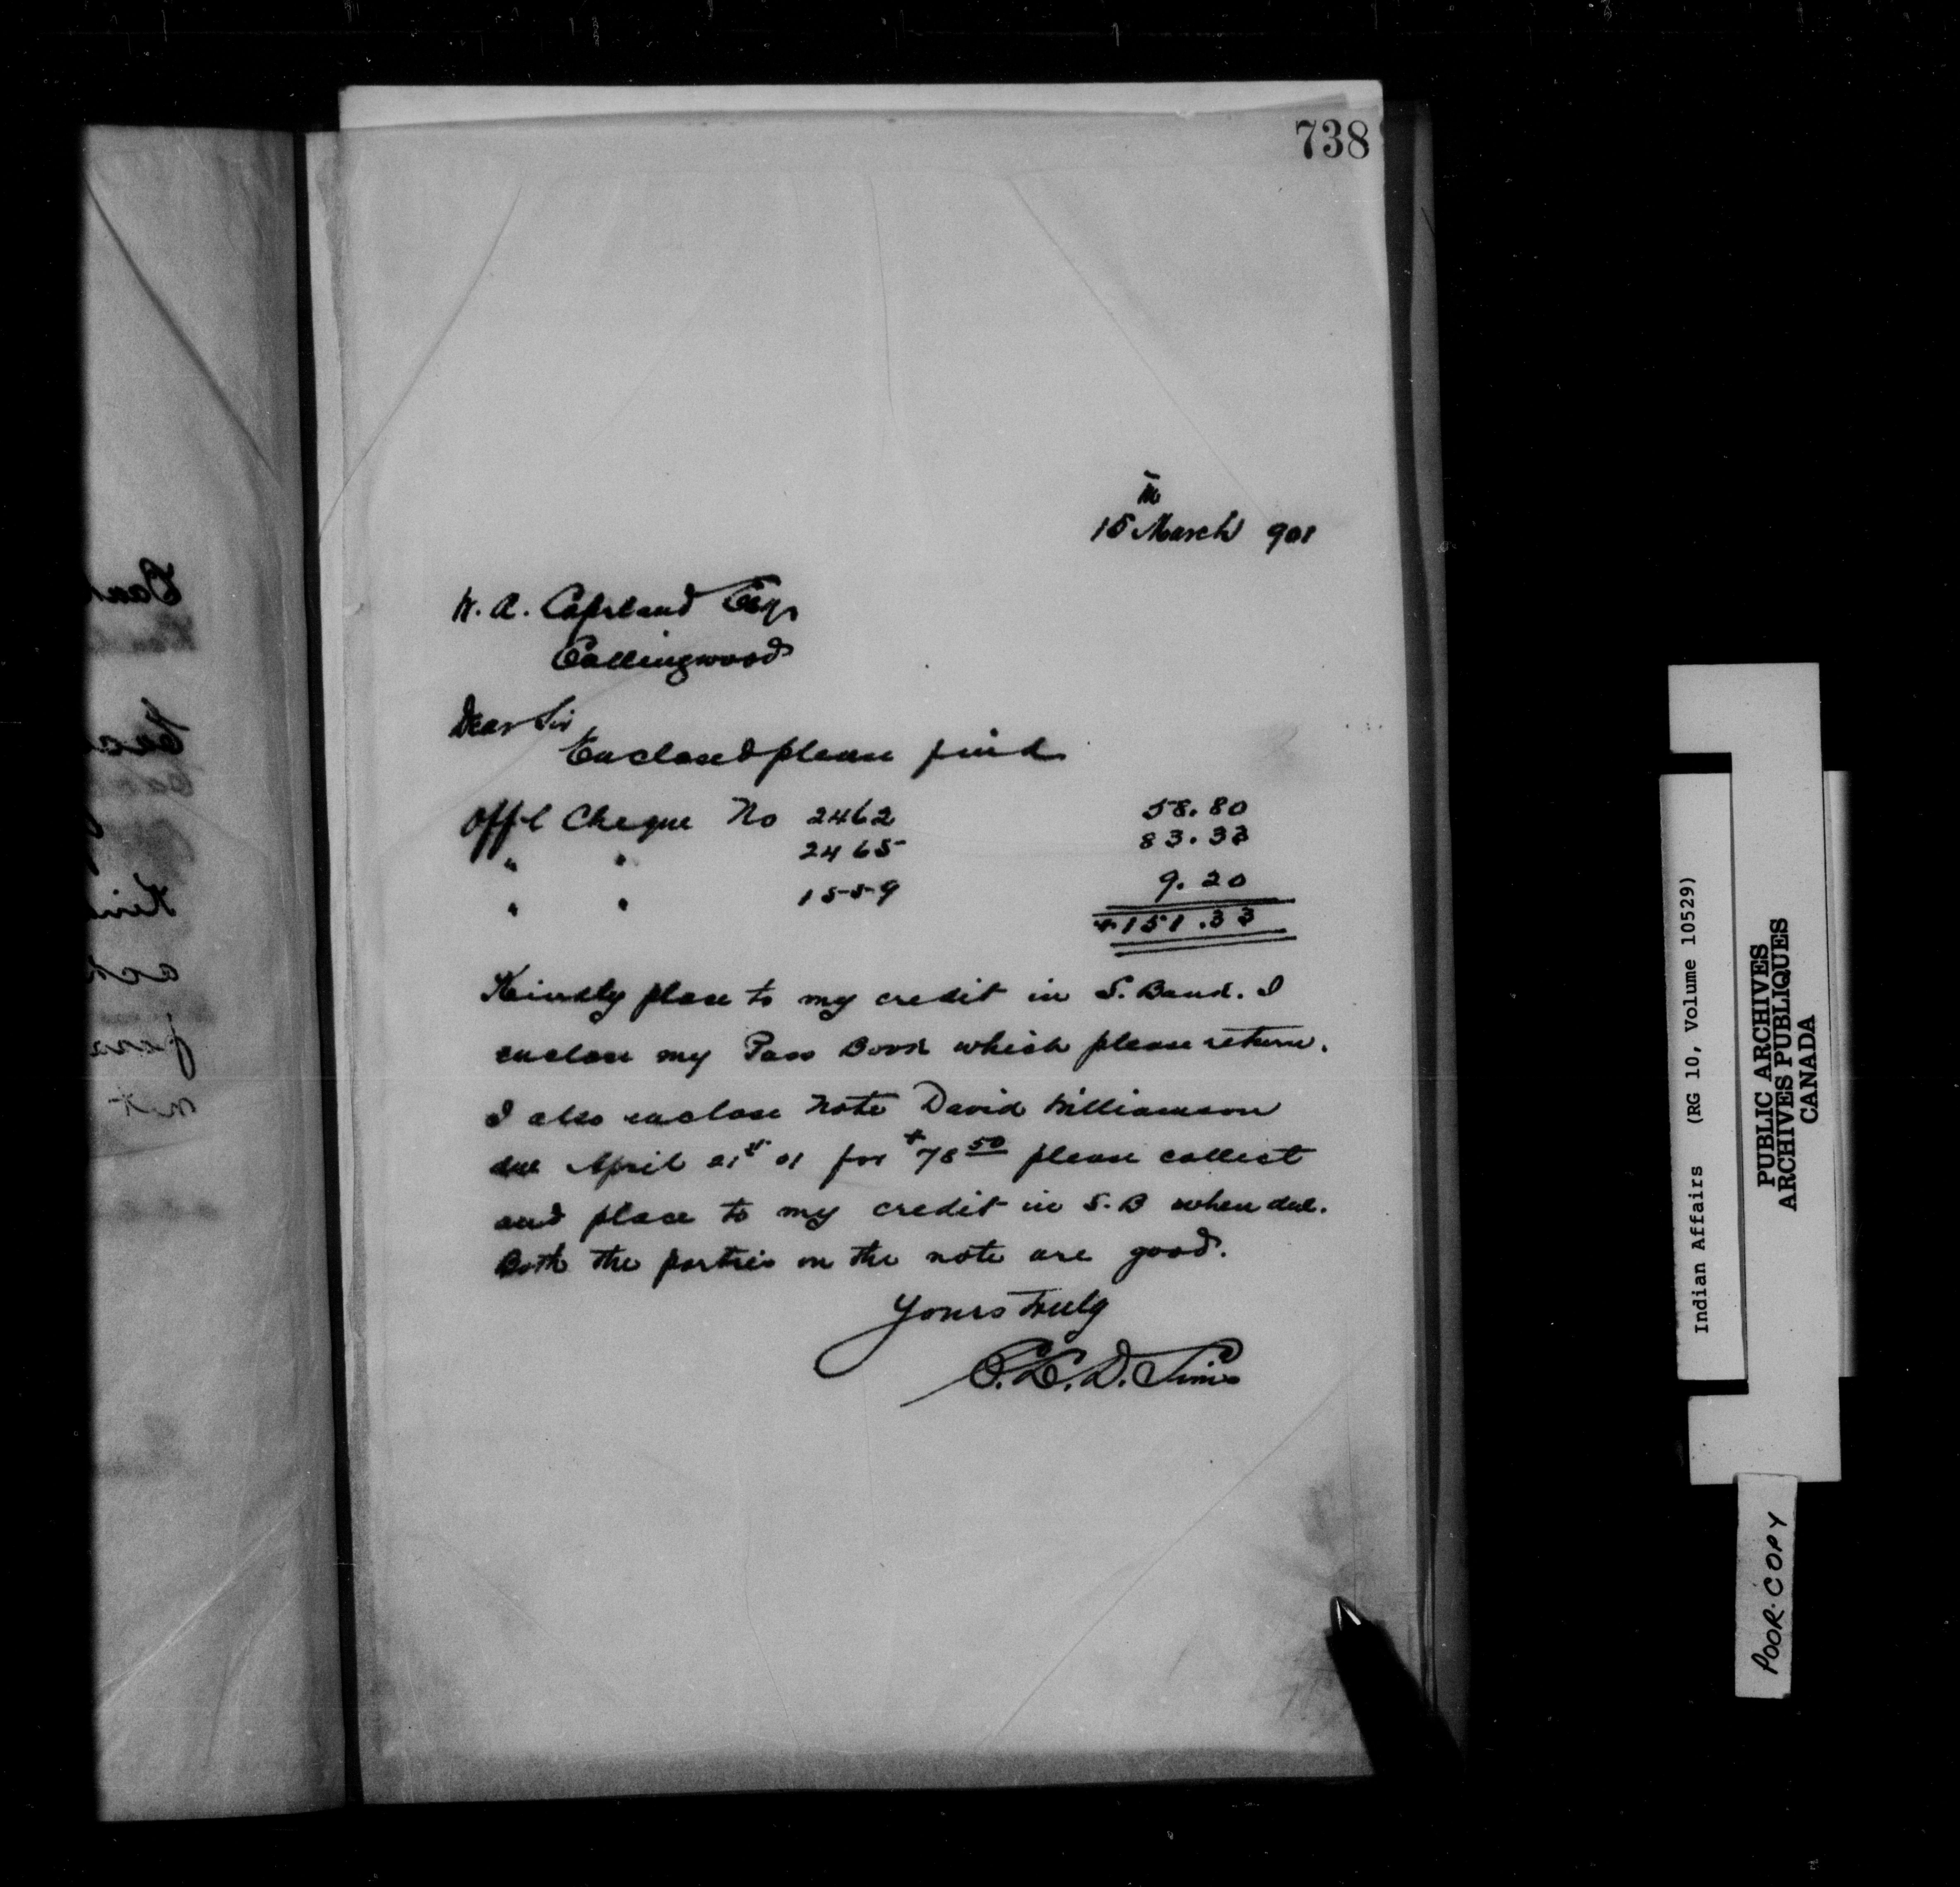 738
15th March 901
W. A. Copeland Esqr
Collingwood
Dear Sir
Enclosed please find
Off'l Cheque No 2462 58.80
" " 2465 83.33
" " 1559 9.20
$151.33
Kindly place to my credit in S. Bank. I
enclose my Pass Book which please return.
I also enclose Note David Williamson
due April 21st 01 for $78 50 please collect
and place to my credit in S.B when due.
Both the parties on the note are good.
Yours truly
C. L. D. Sims
Indian Affairs (RG 10, Volume 10529)
PUBLIC ARCHIVES
ARCHIVES PUBLIQUES
CANADA
POOR COPY